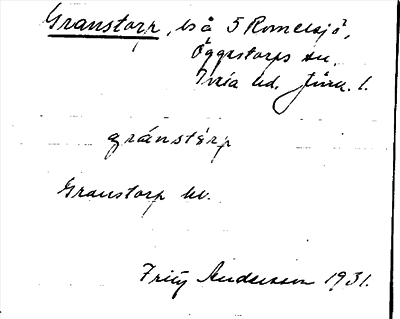 Granstorp, ls å 5 Romelsjö,
Öggestorps sn.
Tveta hd. Jönk. l.
gránstórp
Granstorp kv.
Fritz Andersson 1931.